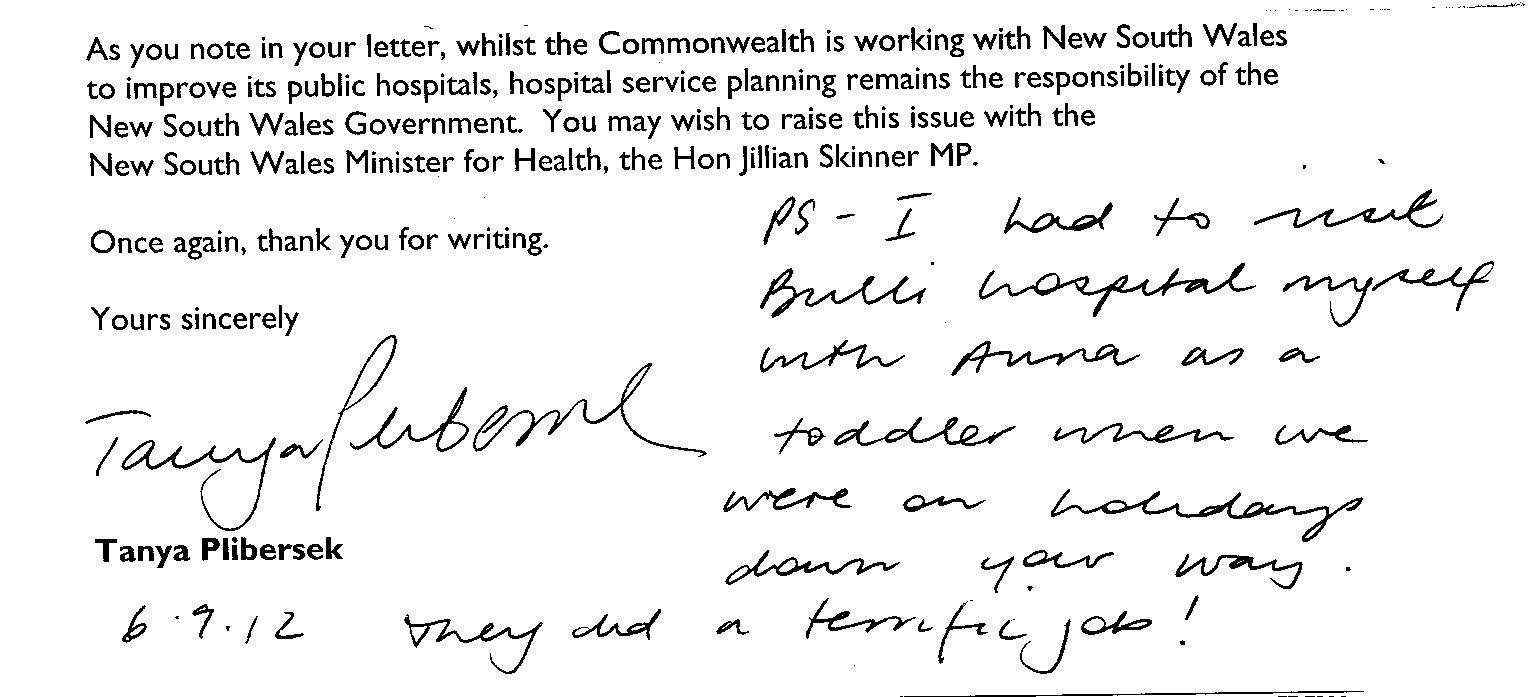 As you note in your letter, whilst the Commonwealth is working with New South Wales
to improve its public hospitals, hospital service planning remains the responsibility of the
New South Wales Government. You may wish to raise this issue with the
New South Wales Minister for Health, the Hon Jillian Skinner MP.
Once again, thank you for writing.
Yours sincerely
Tanya Plibersek
Tanya Plibersek
6.9.12
PS - I had to visit
Bulli hospital myself
with Anna as a
toddler when we
were on holidays
down your way.
They did a terrific job!